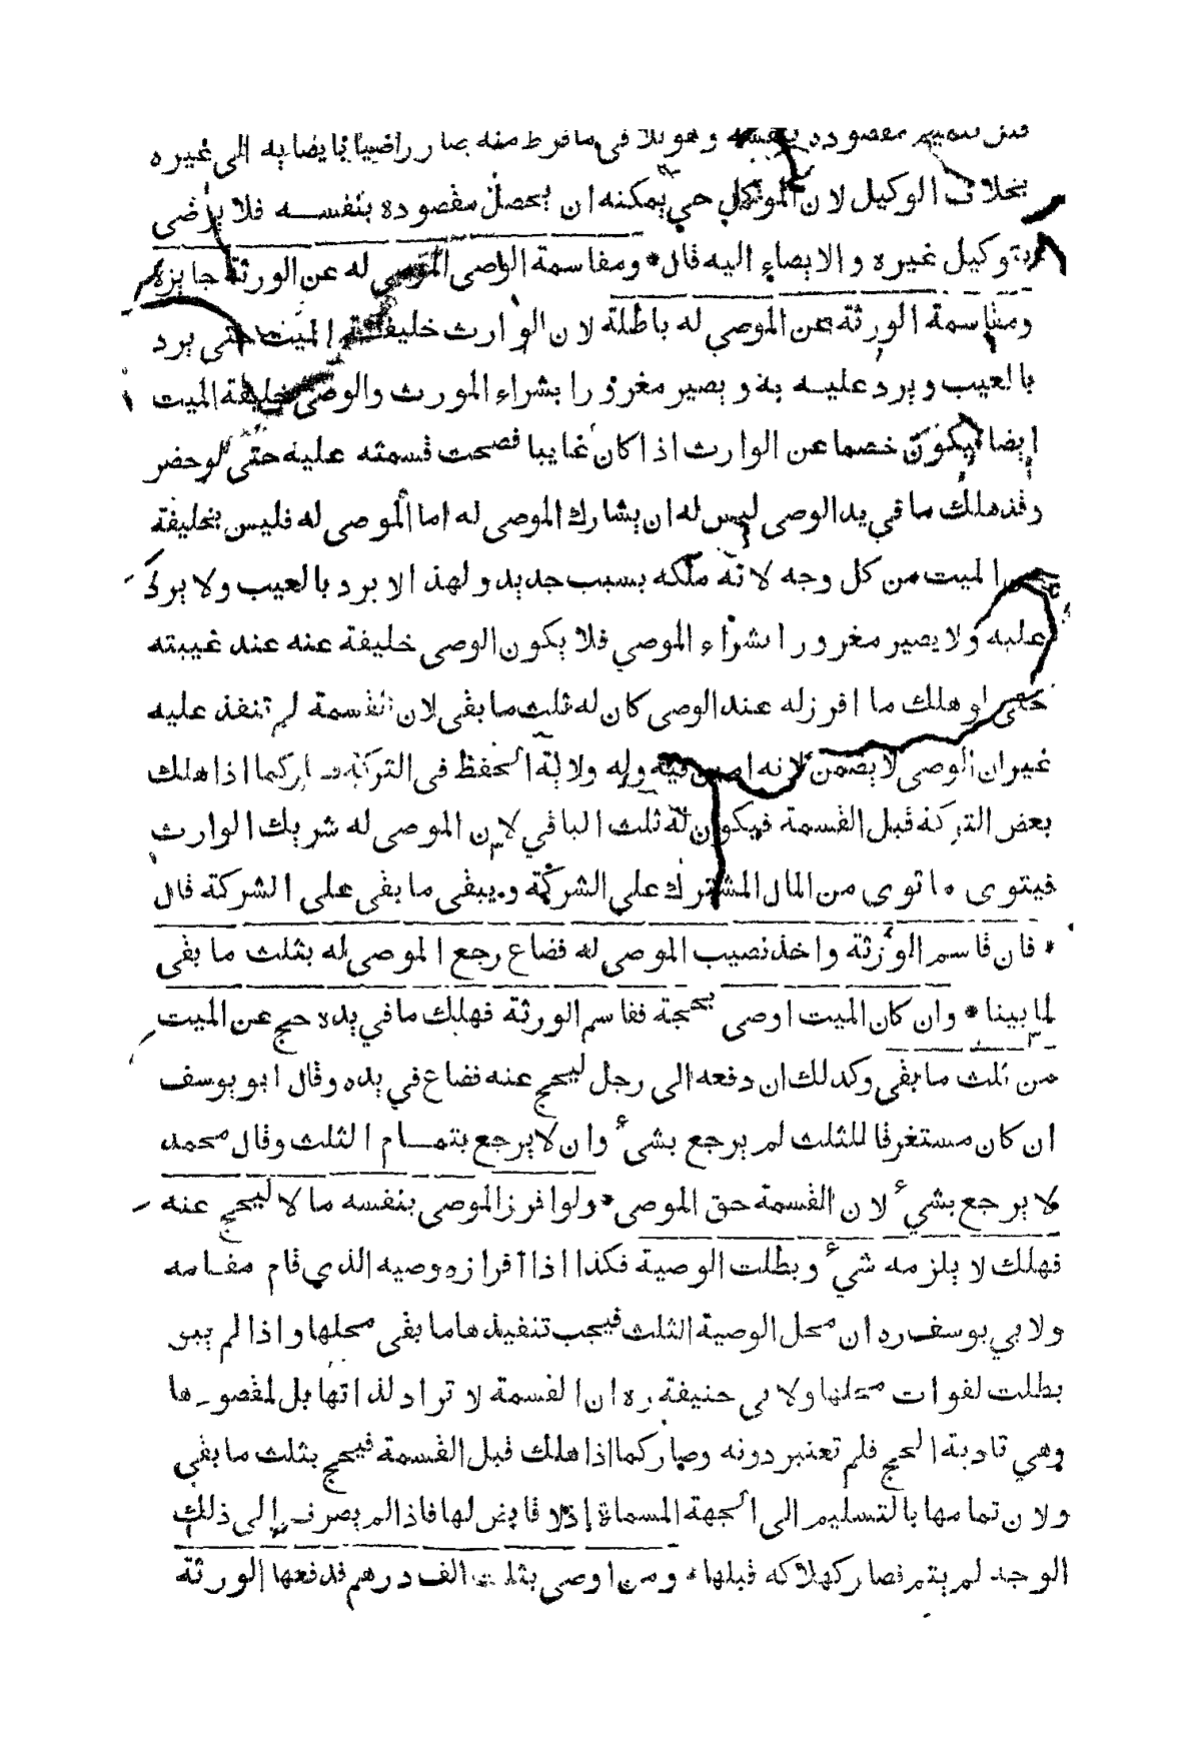 قبل تتميم مقصوده بنفسه وهو تلافى ما فرط منه صار راضيا بايصايه الى غيره
بخلاف الوكيل لان الموكل حي يمكنه ان يحصل مقصوده بنفسه فلا يرضى
بتوكيل غيره والايصاء اليه قال * ومقاسمة الوصى الموصى له عن الورثة جايزة
ومقاسمة الورثة عن الموصي له باطلة لان الوارث خليفة الميت حتى يرد
بالعيب ويرد عليه به ويصير مغرورا بشراء المورث والوصى خليفة الميت
ايضا فيكون خصما عن الوارث اذا كان غايبا فصحت قسمته عليه حتى لو حضر
وقد هلك ما في يد الوصى ليس له ان يشارك الموصى له اما الموصى له فليس بخليفة
عن الميت من كل وجه لانه ملكه بسبب جديد ولهذا لا يرد بالعيب ولا يرد
عليه ولا يصير مغرورا بشراء الموصي فلا يكون الوصى خليفة عنه عند غيبته
حتى لو هلك ما افرز له عند الوصى كان له ثلث ما بقى لان القسمة لم تنفذ عليه
غير ان الوصى لا يضمن لانه امين فيه وله ولاية الحفظ فى التركة فصار كما اذا هلك
بعض التركة قبل القسمة فيكون له ثلث الباقي لان الموصى له شريك الوارث
فيتوى ما توى من المال المشترك على الشركة ويبقى ما بقى على الشركة قال
* فان قاسم الورثة واخذ نصيب الموصى له فضاع رجع الموصى له بثلث ما بقى
لما بينا * وان كان الميت اوصى بحجة فقاسم الورثة فهلك ما في يده حج عن الميت
من ثلث ما بقى وكذلك ان دفعه الى رجل ليحج عنه فضاع في يده وقال ابو يوسف
ان كان مستغرقا للثلث لم يرجع بشيء وان لا يرجع بتمام الثلث وقال محمد
لا يرجع بشيء لان القسمة حق الموصى * ولو افرز الموصى بنفسه مالا ليحج عنه
فهلك لا يلزمه شيء وبطلت الوصية فكذا اذا افرازه وصيه الذي قام مقامه
ولابي يوسف ره ان محل الوصية الثلث فيجب تنفيذها ما بقى محلها واذا لم يبق
بطلت لفوات محلها ولابى حنيفة ره ان القسمة لا تراد لذاتها بل لمقصودها
وهي تادية الحج فلم تعتبر دونه وصار كما اذا هلك قبل القسمة فيحج بثلث ما بقي
ولان تمامها بالتسليم الى الجهة المسماة إذ لا قابض لها فاذا لم يصرف إلى ذلك
الوجه لم يتم فصار كهلاكه قبلها * ومن اوصى بثلث الف درهم فدفعها الورثة